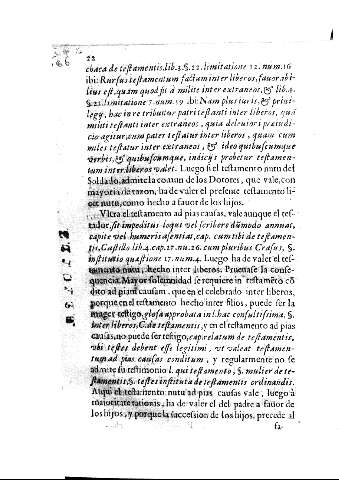 22
chaca de testamentis.lib.3.§.22.limitatione 12.num.16
ibi: Rursus testamentum factum inter liberos, fauorabi-
lius est, quam quod fit à milite inter extraneos, & lib.4.
§.21.limitatione 7.num.19 ibi: Nam plus iuris, & priui-
legij, hac in re tribuitur patri testanti inter liberos, quã
militi testanti inter extraneos, quia de leuiori præiudi-
cio agitur, cum pater testatur inter liberos, quam cum
miles testatur inter extraneos, & ideo quibuscumque
verbis, & quibuscumque, indicijs probetur testamen-
tum inter liberos valet. Luego si el testamento nutu del
Soldado, admite la comun de los Dotores, que vale, con
mayoria de razon, ha de valer el presente testamento li-
cet nutu, como hecho a fauor de los hijos.
Vltra el testamento ad pias causas, vale aunque el tes-
tador, sit impeditus loqui vel scribere dũmodo annuat,
capite vel humeris assentiat, cap. cum tibi de testamen-
tis, Castillo lib.4.cap.27.nu.26.cum pluribus Crasus, §.
institutio quæstione 17.num.4. Luego ha de valer el tes-
tamento nutu, hecho inter liberos. Prueuase la conse-
quencia. Mayor solemnidad se requiere in testamẽto cõ
dito ad piam causam, que en el celebrado inter liberos,
porque en el testamento hecho inter filios, puede ser la
muger testigo, glosa approbata in l. hac consultissima. §.
inter liberos, C. de testamentis, y en el testamento ad pias
causas, no puede ser testigo, cap. relatum de testamentis,
vbi testes debent esse legitimi, vt valeat testamen-
tum ad pias causas conditum, y regularmente no se
admite su testimonio l. qui testamento, §. mulier de te-
stamentis, §. testes instituta de testamentis ordinandis.
Aqui el testamento nutu ad pias causas vale; luego à
maioritate rationis, ha de valer el del padre a fauor de
los hijos, y porque la succession de los hijos, precede al
fa-